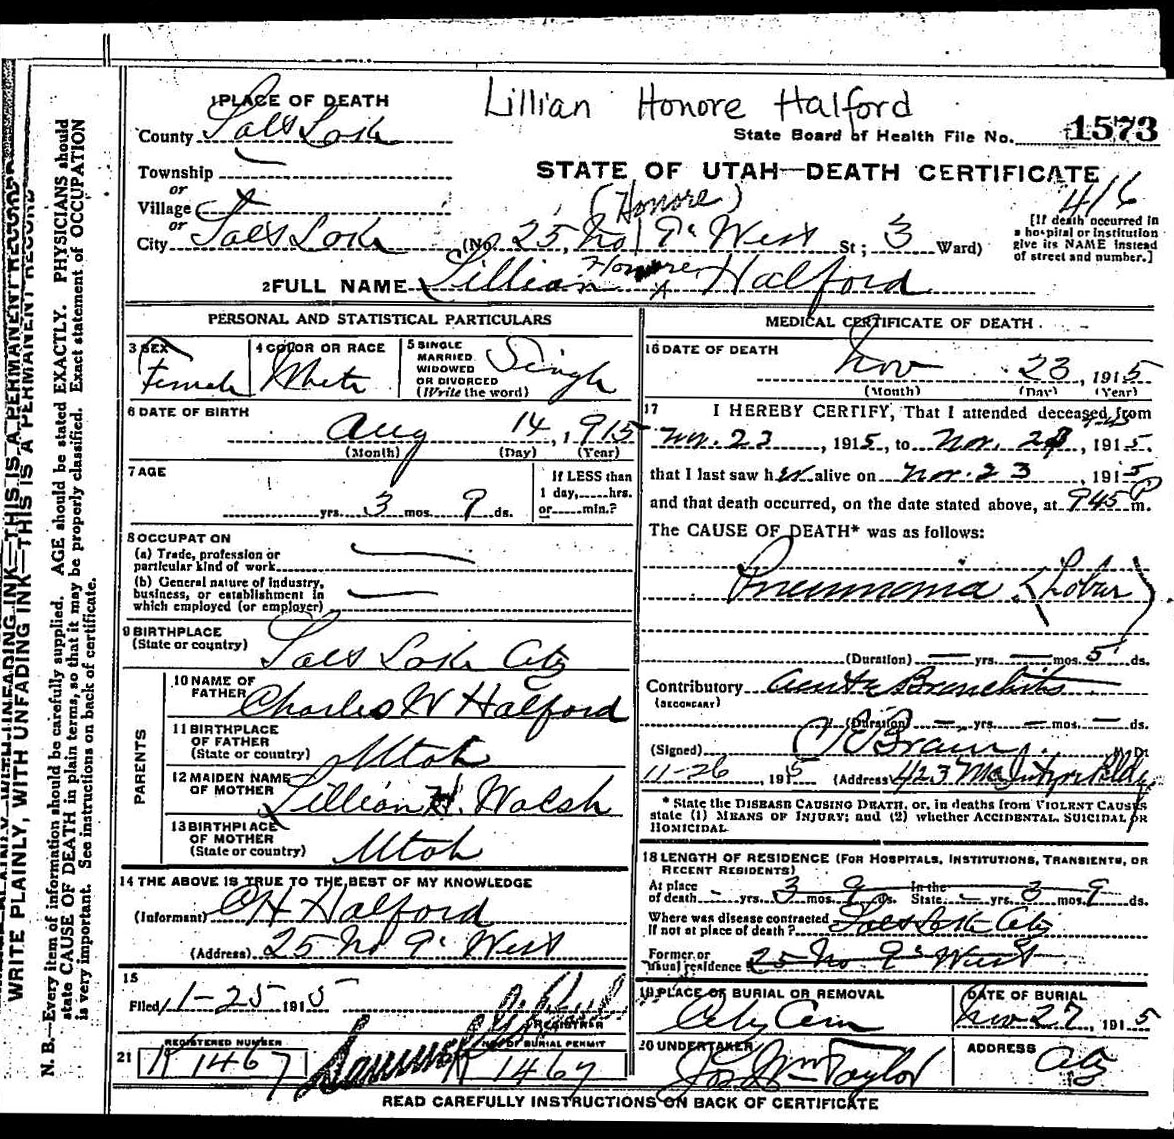 Lillian Honore Halford
1 PLACE OF DEATH
County Salt Lake
State Board of Health File No. 1573
Township
or
Village
or
STATE OF UTAH—DEATH CERTIFICATE
416
(Honore)
City Salt Lake (No. 25 No 9th West St; 3 Ward)
[If death occurred in
a hospital or institution
give its NAME instead
of street and number.]
2 FULL NAME Lillian Honore Halford
PERSONAL AND STATISTICAL PARTICULARS
3 SEX Female
4 COLOR OR RACE White
5 SINGLE
MARRIED
WIDOWED
OR DIVORCED
(Write the word) Single
6 DATE OF BIRTH
Aug 14, 1915
(Month) (Day) (Year)
7 AGE
yrs. 3 mos. 9 ds.
If LESS than
1 day, hrs.
or min.?
8 OCCUPATION
(a) Trade, profession or
particular kind of work
(b) General nature of industry,
business, or establishment in
which employed (or employer)
9 BIRTHPLACE
(State or country) Salt Lake City
PARENTS
10 NAME OF
FATHER Charles W Halford
11 BIRTHPLACE
OF FATHER
(State or country) Utah
12 MAIDEN NAME
OF MOTHER Lillian H. Walsh
13 BIRTHPLACE
OF MOTHER
(State or country) Utah
14 THE ABOVE IS TRUE TO THE BEST OF MY KNOWLEDGE
(Informant) CH Halford
(Address) 25 No 9th West
15
Filed 11-25 1915
REGISTRAR
21 REGISTERED NUMBER 1467
NO. OF BURIAL PERMIT 1467
MEDICAL CERTIFICATE OF DEATH
16 DATE OF DEATH
Nov 23, 1915
(Month) (Day) (Year)
17 I HEREBY CERTIFY, That I attended deceased from
Nov. 22, 1915, to Nov. 23, 1915.
that I last saw her alive on Nov. 23 1915
and that death occurred, on the date stated above, at 945 P m.
The CAUSE OF DEATH* was as follows:
Pneumonia (Lobar)
(Duration) — yrs. — mos. 5 ds.
Contributory Acute Bronchitis
(SECONDARY)
(Duration) — yrs. — mos. — ds.
(Signed) M. D.
11-26, 1915 (Address) 423 McIntyre Bldg
* State the DISEASE CAUSING DEATH, or, in deaths from VIOLENT CAUSES
state (1) MEANS OF INJURY; and (2) whether ACCIDENTAL, SUICIDAL or
HOMICIDAL.
18 LENGTH OF RESIDENCE (FOR HOSPITALS, INSTITUTIONS, TRANSIENTS, OR
RECENT RESIDENTS)
At place
of death - yrs. 3 mos. 9 ds. In the
State - yrs. 3 9 ds.
Where was disease contracted
If not at place of death? Salt Lake City
Former or
usual residence 25 No. 9th West
19 PLACE OF BURIAL OR REMOVAL
City Cem
DATE OF BURIAL
Nov 27, 1915
20 UNDERTAKER
Jos Wm Taylor
ADDRESS
City
READ CAREFULLY INSTRUCTIONS ON BACK OF CERTIFICATE
WRITE PLAINLY, WITH UNFADING INK—THIS IS A PERMANENT RECORD
N. B.—Every item of information should be carefully supplied. AGE should be stated EXACTLY. PHYSICIANS should
state CAUSE OF DEATH in plain terms, so that it may be properly classified. Exact statement of OCCUPATION
is very important. See instructions on back of certificate.